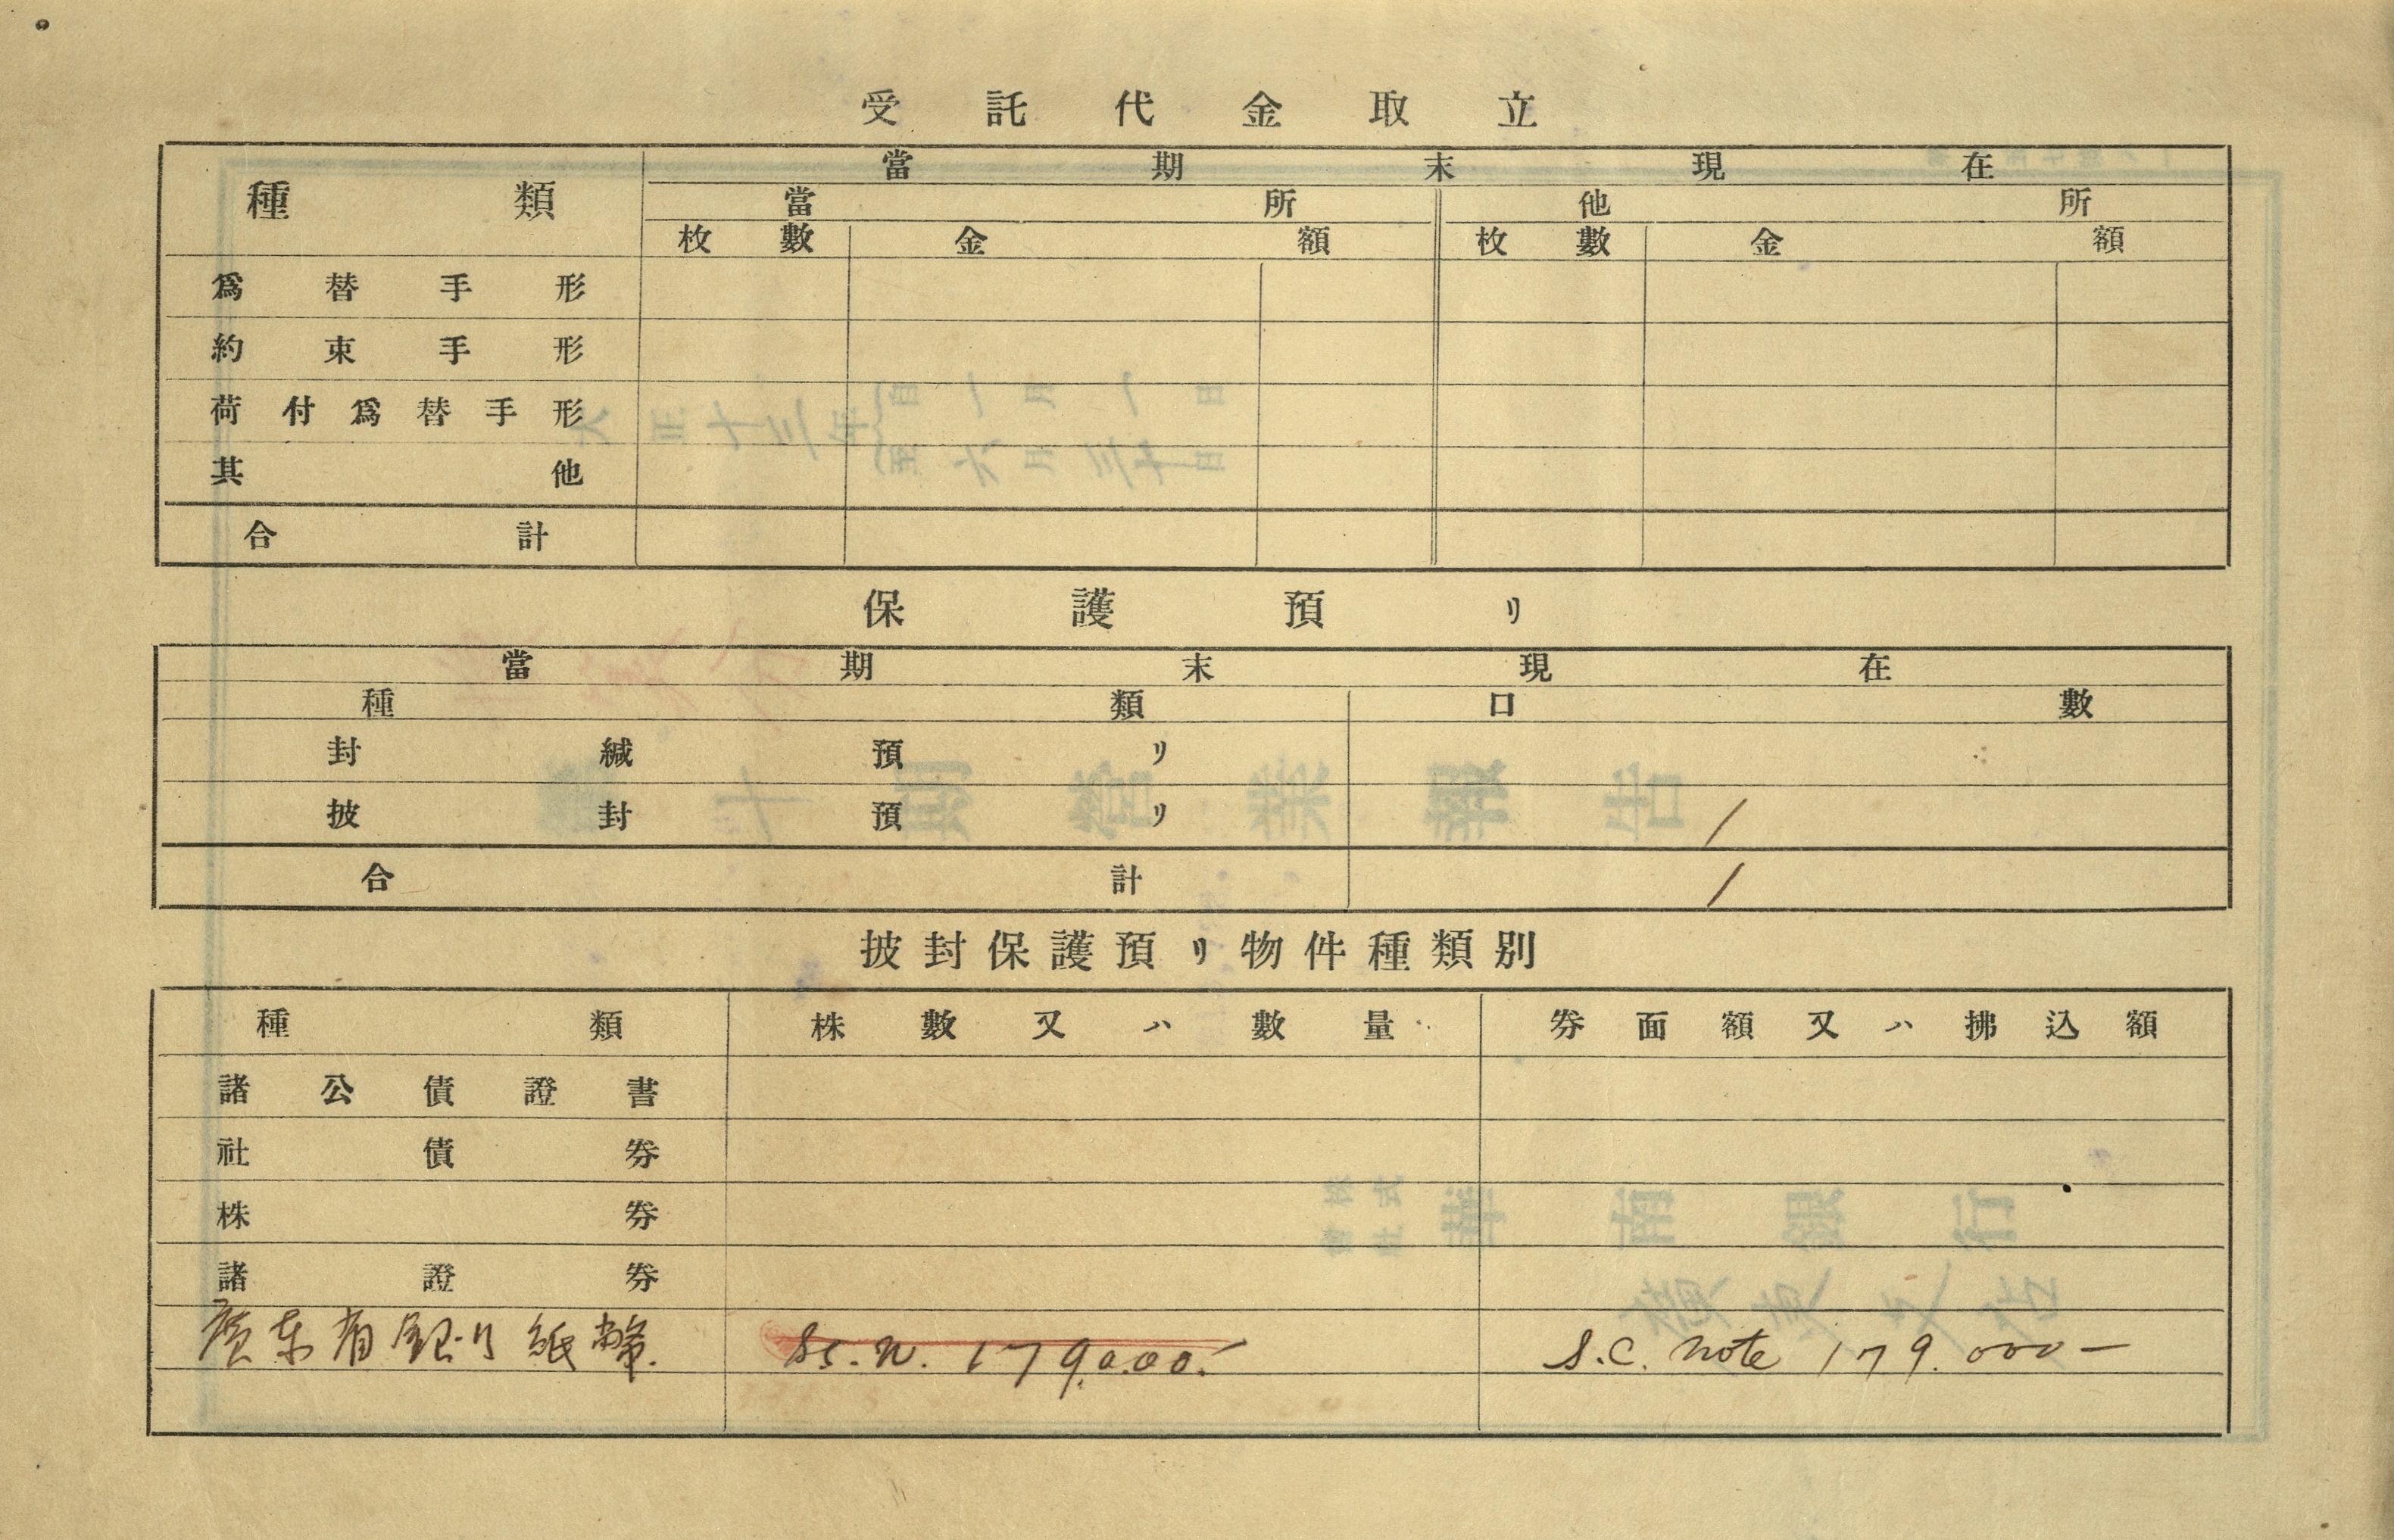 受託代金取立
種類 當期末現在
當所 他所
枚數 金額 枚數 金額
爲替手形
約束手形
荷付爲替手形
其他
合計
保護預リ
當期末現在
種類 口數
封緘預リ
披封預リ 1
合計 1
披封保護預リ物件種類別
種類 株數又ハ數量 券面額又ハ拂込額
諸公債證書
社債券
株券
諸證券
廣东省銀行紙幣. 179,000.- S.C. note 179.000—